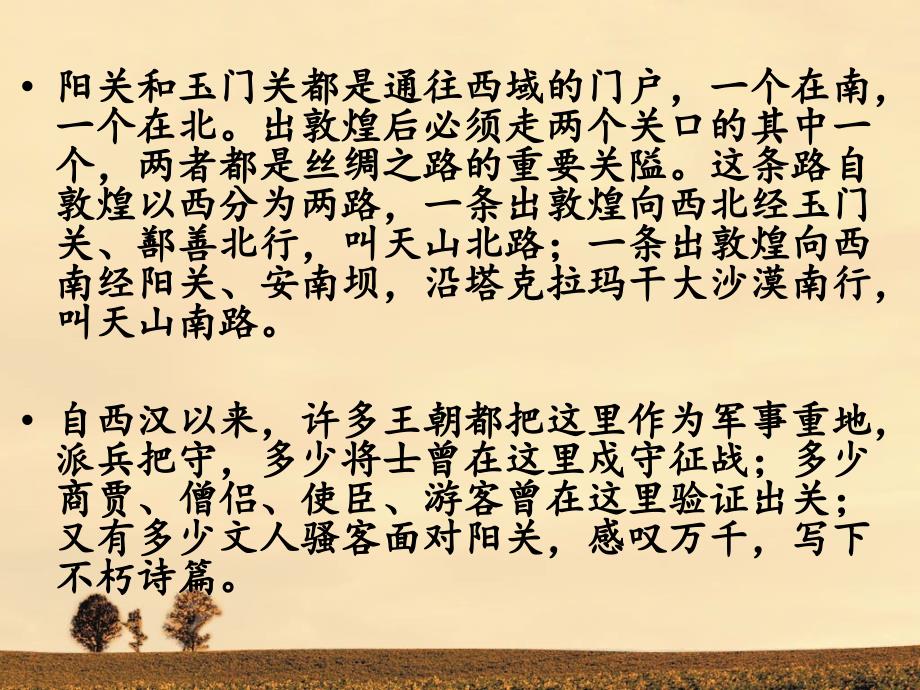 • 阳关和玉门关都是通往西域的门户，一个在南，
一个在北。出敦煌后必须走两个关口的其中一
个，两者都是丝绸之路的重要关隘。这条路自
敦煌以西分为两路，一条出敦煌向西北经玉门
关、鄯善北行，叫天山北路；一条出敦煌向西
南经阳关、安南坝，沿塔克拉玛干大沙漠南行，
叫天山南路。
• 自西汉以来，许多王朝都把这里作为军事重地，
派兵把守，多少将士曾在这里戍守征战；多少
商贾、僧侣、使臣、游客曾在这里验证出关；
又有多少文人骚客面对阳关，感叹万千，写下
不朽诗篇。